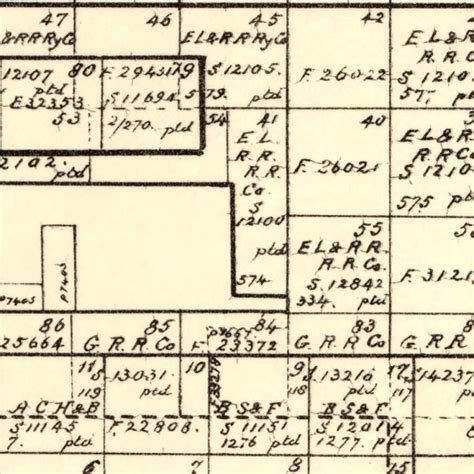 47
46
45
42
&RRRyCo
EL&RRRyCo
EL&R
R.R.Co
12107 80
F.29431 79
S12105.
F.26022
S 1210
ptd
E32353
S 11694
579.
ptd
57.
ptd
53
2/270. ptd
54
41
40
EL
R.
R.
R.R
Co
S
12100
ptd
574
EL&R
RRCo
F.26021
S 1210
575 ptd
2102. ptd
55
EL&RR
R.R.Co.
S. 12842
334. ptd
F.3121
P7405
P7405
86
85
84
83
25664
G.R.R Co
F 23372
G.R.R Co
G.RR
11
S
119
13031.
ptd
10
33278
9
S
118
13210
ptd
12
S
117
14237
ptd
A C H & B
BS&F
BS&F
S 11145
7. ptd
F.22808.
S 11151
1276 ptd
S 12014
1277. ptd
6
7
8
15